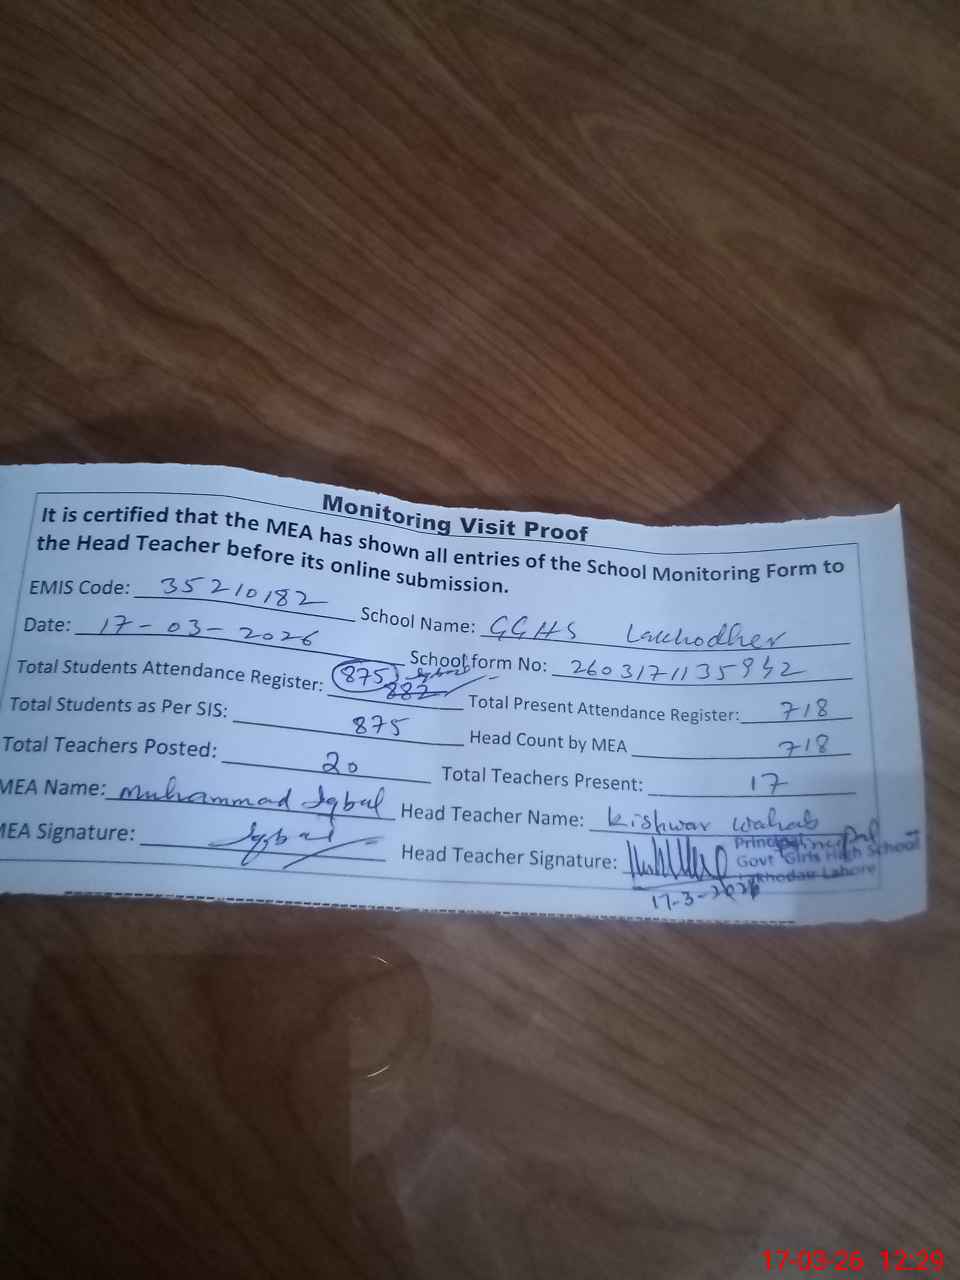 Monitoring Visit Proof
It is certified that the MEA has shown all entries of the School Monitoring Form to
the Head Teacher before its online submission.
EMIS Code: 35210182 School Name: GGHS Lakhodher
Date: 17-03-2026 School form No: 2603171135942
Total Students Attendance Register: 875 Iqbal 882 Total Present Attendance Register: 718
Total Students as Per SIS: 875 Head Count by MEA 718
Total Teachers Posted: 20 Total Teachers Present: 17
MEA Name: Muhammad Iqbal Head Teacher Name: Kishwar Wahab
MEA Signature: Iqbal Head Teacher Signature:
Principal
Govt Girls High School
Lakhodair Lahore
17-3-2026
17-03-26 12:29